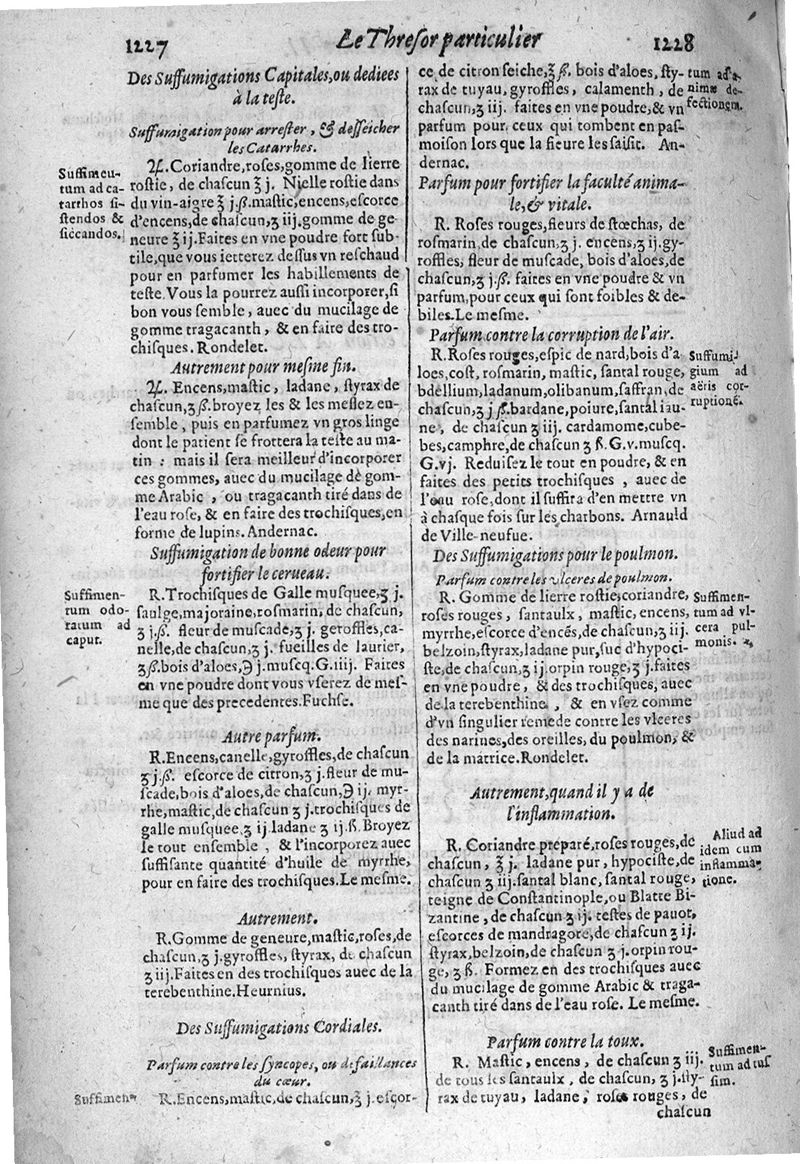 1227
Le Thresor particulier
1228
Des Suffumigations Capitales, ou dediees
à la teste.
Suffumigation pour arrester, & desseicher
les Catarrhes.
Suffimen-
tum ad ca-
tarrhos si-
stendos &
siccandos.
♃. Coriandre, roses, gomme de lierre
rostie, de chascun ℥ j. Nielle rostie dans
du vin-aigre ʒ j.ß. mastic, encens, escorce
d'encens, de chascun, ʒ iij. gomme de ge-
neure ℥ iij. Faites en vne poudre fort sub-
tile, que vous ietterez dessus vn reschaud
pour en parfumer les habillements de
teste. Vous la pourrez aussi incorporer, si
bon vous semble, auec du mucilage de
gomme tragacanth, & en faire des tro-
chisques. Rondelet.
Autrement pour mesme fin.
♃. Encens, mastic, ladane, styrax de
chascun, ʒ ß. broyez les & les meslez en-
semble, puis en parfumez vn gros linge
dont le patient se frottera la teste au ma-
tin : mais il sera meilleur d'incorporer
ces gommes, auec du mucilage de gom-
me Arabic, ou tragacanth tiré dans de
l'eau rose, & en faire des trochisques, en
forme de lupins. Andernac.
Suffumigation de bonne odeur pour
fortifier le cerueau.
Suffimen-
tum odo-
ratum ad
caput.
R. Trochisques de Galle musquee, ʒ j.
saulge, majoraine, rosmarin, de chascun,
ʒ j.ß. fleur de muscade, ʒ j. geroffles, ca-
nelle, de chascun, ʒ j. fueilles de laurier,
ʒ ß. bois d'aloes, ℈ j. muscq. G. iiij. Faites
en vne poudre dont vous vserez de mes-
me que des precedentes. Fuchse.
Autre parfum.
R. Encens, canelle, gyroffles, de chascun
ʒ j.ß. escorce de citron, ʒ j. fleur de mu-
scade, bois d'aloes, de chascun, ℈ ij. myr-
rhe, mastic, de chascun ʒ j. trochisques de
galle musquee, ʒ ij. ladane ʒ ij.ß. Broyez
le tout ensemble, & l'incorporez auec
suffisante quantité d'huile de myrrhe,
pour en faire des trochisques. Le mesme.
Autrement.
R. Gomme de geneure, mastic, roses, de
chascun, ʒ j. gyroffles, styrax, de chascun
ʒ iij. Faites en des trochisques auec de la
terebenthine. Heurnius.
Des Suffumigations Cordiales.
Parfum contre les syncopes, ou defaillances
du cœur.
Suffimen-
R. Encens, mastic, de chascun, ℥ j. escor-
ce de citron seiche, ℥ ß. bois d'aloes, sty-
rax de tuyau, gyroffles, calamenth, de
chascun, ʒ iij. faites en vne poudre, & vn
parfum pour ceux qui tombent en pas-
moison lors que la fieure les saisit. An-
dernac.
tum ad a-
nimæ de-
fectionem.
Parfum pour fortifier la faculté anima-
le, & vitale.
R. Roses rouges, fleurs de stœchas, de
rosmarin, de chascun, ʒ j. encens, ʒ ij. gy-
roffles, fleur de muscade, bois d'aloes, de
chascun, ʒ j.ß. faites en vne poudre & vn
parfum, pour ceux qui sont foibles & de-
biles. Le mesme.
Parfum contre la corruption de l'air.
R. Roses rouges, espic de nard, bois d'a-
loes, cost, rosmarin, mastic, santal rouge,
bdellium, ladanum, olibanum, saffran, de
chascun, ʒ j ß. bardane, poiure, santal iau-
ne, de chascun ʒ iij. cardamome, cube-
bes, camphre, de chascun ʒ ß. G.v. muscq.
G. vj. Reduisez le tout en poudre, & en
faites des petits trochisques, auec de
l'eau rose, dont il suffira d'en mettre vn
à chasque fois sur les charbons. Arnauld
de Ville-neufue.
Suffumi-
gium ad
aëris cor-
ruptionē.
Des Suffumigations pour le poulmon.
Parfum contre les vlceres de poulmon.
R. Gomme de lierre rostie, coriandre,
roses rouges, santaulx, mastic, encens,
myrrhe, escorce d'encés, de chascun, ʒ iij.
belzoin, styrax, ladane pur, suc d'hypoci-
ste, de chascun, ʒ ij. orpin rouge, ʒ j. faites
en vne poudre, & des trochisques, auec
de la terebenthine, & en vsez comme
d'vn singulier remede contre les vlceres
des narines, des oreilles, du poulmon, &
de la matrice. Rondelet.
Suffimen-
tum ad vl-
cera pul-
monis.
Autrement, quand il y a de
l'inflammation.
R. Coriandre preparé, roses rouges, de
chascun, ℥ j. ladane pur, hypociste, de
chascun ʒ iij. santal blanc, santal rouge,
teigne de Constantinople, ou Blatte Bi-
zantine, de chascun ʒ ij. testes de pauot,
escorces de mandragore, de chascun ʒ ij.
styrax, belzoin, de chascun ʒ j. orpin rou-
ge, ʒ ß. Formez en des trochisques auec
du mucilage de gomme Arabic & traga-
canth tiré dans de l'eau rose. Le mesme.
Aliud ad
idem cum
inflamma-
tione.
Parfum contre la toux.
R. Mastic, encens, de chascun ʒ iij.
de tous les santaulx, de chascun, ʒ j. sty-
rax de tuyau, ladane, roses rouges, de
Suffimen-
tum ad tus
sim.
chascun